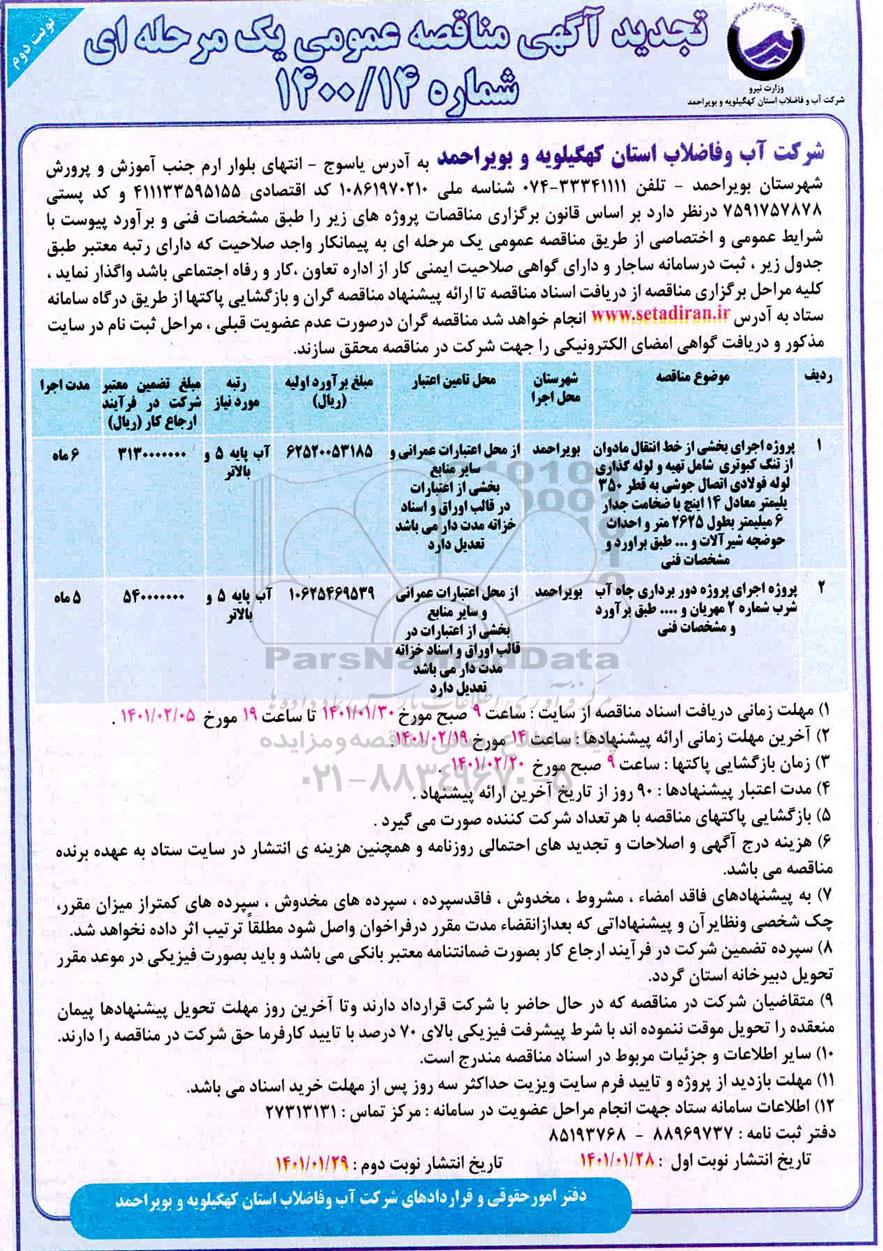 نوبت دوم
تجدید آگهی مناقصه عمومی یک مرحله ای
شماره ۱۴۰۰/۱۴
وزارت نیرو
شرکت آب و فاضلاب استان کهگیلویه و بویراحمد
شرکت آب وفاضلاب استان کهگیلویه و بویراحمد به آدرس یاسوج - انتهای بلوار ارم جنب آموزش و پرورش
شهرستان بویراحمد - تلفن ۳۳۳۴۱۱۱۱-۰۷۴ شناسه ملی ۱۰۸۶۱۹۷۰۲۱۰ کد اقتصادی ۴۱۱۱۳۳۵۹۵۱۵۵ و کد پستی
۷۵۹۱۷۵۷۸۷۸ درنظر دارد بر اساس قانون برگزاری مناقصات پروژه های زیر را طبق مشخصات فنی و برآورد پیوست با
شرایط عمومی و اختصاصی از طریق مناقصه عمومی یک مرحله ای به پیمانکار واجد صلاحیت که دارای رتبه معتبر طبق
جدول زیر ، ثبت درسامانه ساجار و دارای گواهی صلاحیت ایمنی کار از اداره تعاون ،کار و رفاه اجتماعی باشد واگذار نماید ،
کلیه مراحل برگزاری مناقصه از دریافت اسناد مناقصه تا ارائه پیشنهاد مناقصه گران و بازگشایی پاکتها از طریق درگاه سامانه
ستاد به آدرس www.setadiran.ir انجام خواهد شد مناقصه گران درصورت عدم عضویت قبلی ، مراحل ثبت نام در سایت
مذکور و دریافت گواهی امضای الکترونیکی را جهت شرکت در مناقصه محقق سازند.
ردیف موضوع مناقصه شهرستان محل اجرا محل تامین اعتبار مبلغ برآورد اولیه (ریال) رتبه مورد نیاز مبلغ تضمین معتبر شرکت در فرآیند ارجاع کار (ریال) مدت اجرا
۱ پروژه اجرای بخشی از خط انتقال مادوان از تنگ کبوتری شامل تهیه و لوله گذاری لوله فولادی اتصال جوشی به قطر ۳۵۰ یلیمتر معادل ۱۴ اینچ با ضخامت جدار ۶ میلیمتر بطول ۲۶۲۵ متر و احداث حوضچه شیرآلات و ... طبق براورد و مشخصات فنی
بویراحمد
از محل اعتبارات عمرانی و سایر منابع بخشی از اعتبارات در قالب اوراق و اسناد خزانه مدت دار می باشد تعدیل دارد
۶۲۵۲۰۰۵۳۱۸۵
آب پایه ۵ و بالاتر
۳۱۳۰۰۰۰۰۰۰
۶ ماه
۲ پروژه اجرای پروژه دور برداری چاه آب شرب شماره ۲ مهریان و .... طبق برآورد و مشخصات فنی
بویراحمد
از محل اعتبارات عمرانی و سایر منابع بخشی از اعتبارات در قالب اوراق و اسناد خزانه مدت دار می باشد تعدیل دارد
۱۰۶۲۵۴۶۹۵۳۹
آب پایه ۵ و بالاتر
۵۴۰۰۰۰۰۰۰
۵ ماه
ParsNamadData
۰۲۱-۸۸۳۴۹۶۷۰-۵
۱) مهلت زمانی دریافت اسناد مناقصه از سایت : ساعت ۹ صبح مورخ ۱۴۰۱/۰۱/۳۰ تا ساعت ۱۹ مورخ ۱۴۰۱/۰۲/۰۵ .
۲) آخرین مهلت زمانی ارائه پیشنهادها : ساعت ۱۴ مورخ ۱۴۰۱/۰۲/۱۹.
۳) زمان بازگشایی پاکتها : ساعت ۹ صبح مورخ ۱۴۰۱/۰۲/۲۰ .
۴) مدت اعتبار پیشنهادها : ۹۰ روز از تاریخ آخرین ارائه پیشنهاد .
۵) بازگشایی پاکتهای مناقصه با هرتعداد شرکت کننده صورت می گیرد .
۶) هزینه درج آگهی و اصلاحات و تجدید های احتمالی روزنامه و همچنین هزینه ی انتشار در سایت ستاد به عهده برنده
مناقصه می باشد.
۷) به پیشنهادهای فاقد امضاء ، مشروط ، مخدوش ، فاقدسپرده ، سپرده های مخدوش ، سپرده های کمتراز میزان مقرر،
چک شخصی ونظایرآن و پیشنهاداتی که بعدازانقضاء مدت مقرر درفراخوان واصل شود مطلقاً ترتیب اثر داده نخواهد شد.
۸) سپرده تضمین شرکت در فرآیند ارجاع کار بصورت ضمانتنامه معتبر بانکی می باشد و باید بصورت فیزیکی در موعد مقرر
تحویل دبیرخانه استان گردد.
۹) متقاضیان شرکت در مناقصه که در حال حاضر با شرکت قرارداد دارند وتا آخرین روز مهلت تحویل پیشنهادها پیمان
منعقده را تحویل موقت ننموده اند با شرط پیشرفت فیزیکی بالای ۷۰ درصد با تایید کارفرما حق شرکت در مناقصه را دارند.
۱۰) سایر اطلاعات و جزئیات مربوط در اسناد مناقصه مندرج است.
۱۱) مهلت بازدید از پروژه و تایید فرم سایت ویزیت حداکثر سه روز پس از مهلت خرید اسناد می باشد.
۱۲) اطلاعات سامانه ستاد جهت انجام مراحل عضویت در سامانه : مرکز تماس : ۲۷۳۱۳۱۳۱
دفتر ثبت نامه : ۸۸۹۶۹۷۳۷ - ۸۵۱۹۳۷۶۸
تاریخ انتشار نوبت اول : ۱۴۰۱/۰۱/۲۸ تاریخ انتشار نوبت دوم : ۱۴۰۱/۰۱/۲۹
دفتر امورحقوقی و قراردادهای شرکت آب وفاضلاب استان کهگیلویه و بویراحمد